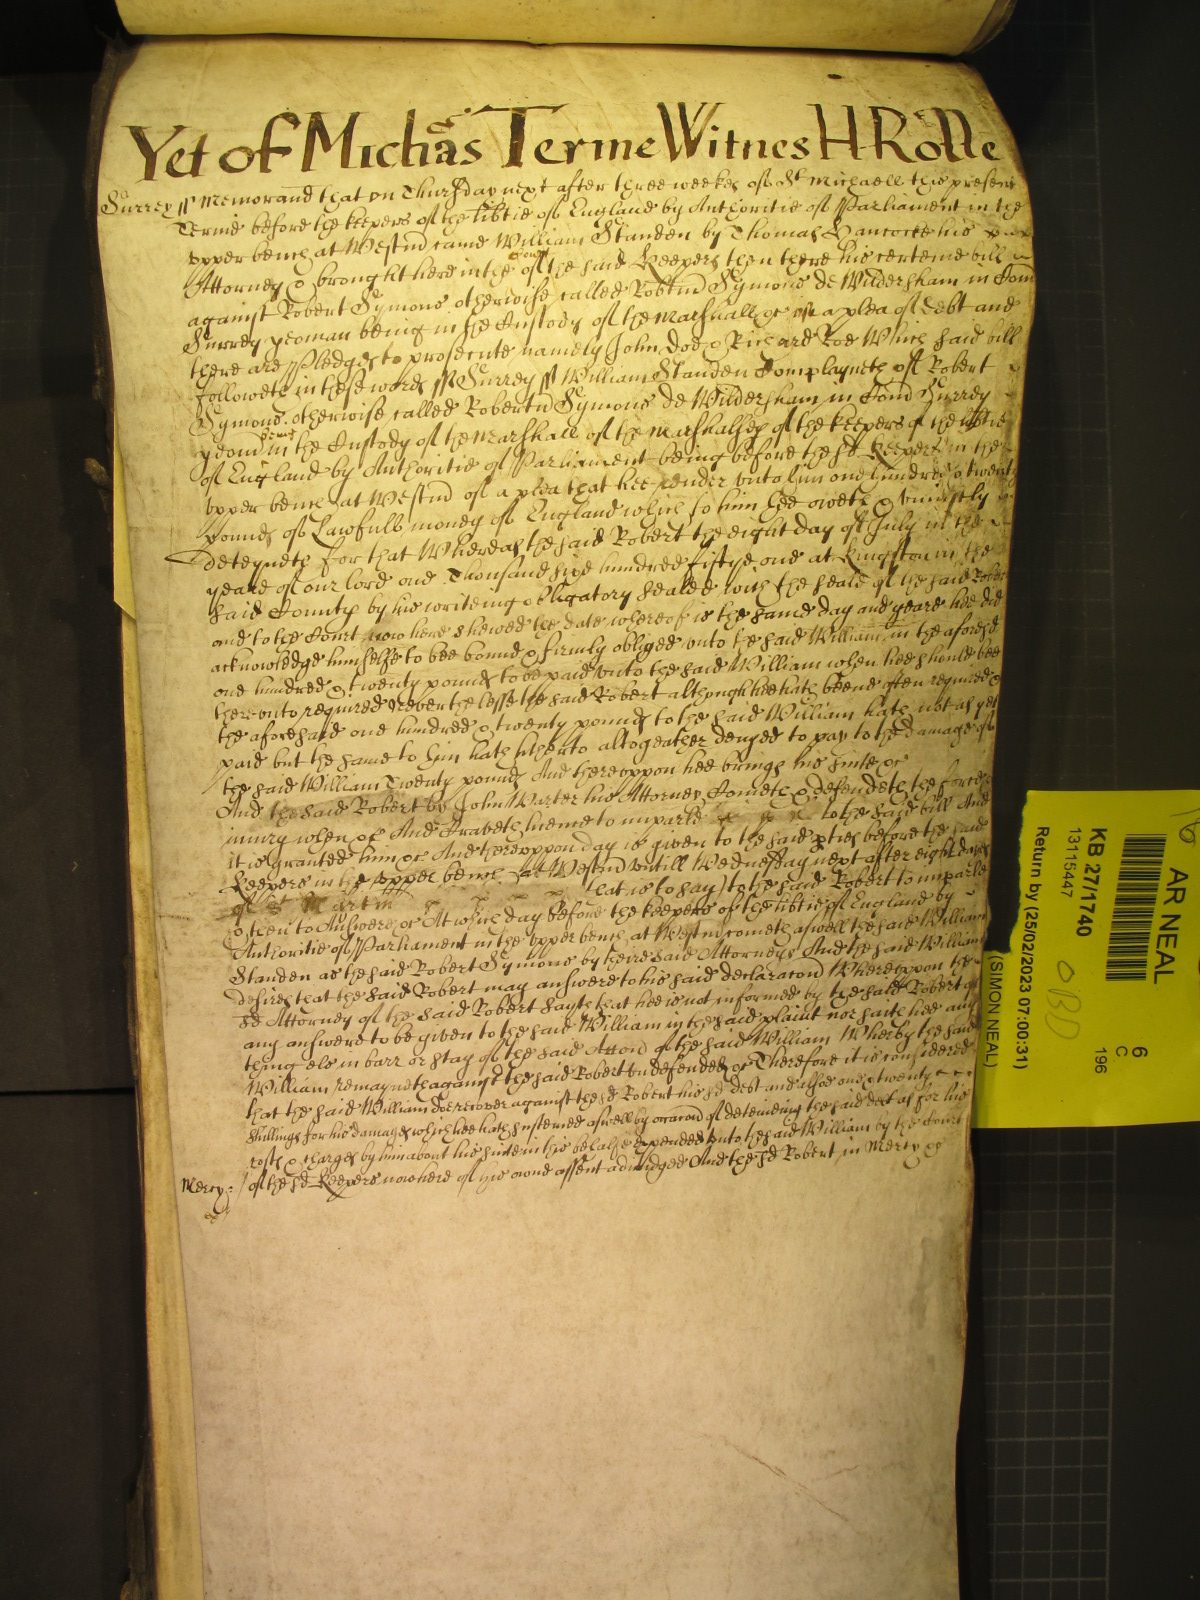 Yet of Michas Terme Witnes H Rolle
Surrey ss Memorand that on Thursday next after three weekes of St Michaell this present
Terme before the keepers of the libtie of England by Authoritie of Parliament in the
upper bench at Westm came William Standen by Thomas Hancocke his
Attorney & brought here in the Court of the said Keepers then there his certeine bill
against Robert Symons otherwise called Robtm Symons de Wildersham in Com
Surrey yeoman being in the Custody of the Marshall &c of a plea of debt and
there are Pledges to prosecute namely John Doe & Richard Roe Which said bill
followeth in these words ss Surrey ss William Standen Complayneth of Robert
Symons otherwise called Robertm Symons de Wildersham in Com Surrey
yeom being in the Custody of the Marshall of the Marshalsey of the keepers of the libtie
of England by Authoritie of Parliament being before the sd Keepers in the
upper bench at Westm of a plea that hee render unto him one hundred & twenty
pounds of Lawfull money of England which to him hee oweth & uniustly
deteyneth for that Whereas the said Robert the eight day of July in the
yeare of our lord one Thousand six hundred fiftye one at Kingston in the
said County by his writeing obligatory sealed with the seale of the said Robert
and to the Court now here shewed the date whereof is the same day and yeare hee did
acknowledge himselfe to bee bound & firmly obliged unto the said William in the aforesd
one hundred & twenty pounds to be paid unto the said William when hee should bee
thereunto required Neverthelesse the said Robert although hee hath beene often required
the aforesaid one hundred & twenty pounds to the said William hath not as yet
paid but the same to him hath hitherto altogeather denyed to pay to the damage of
the said William Twenty pounds And thereuppon hee brings his suite &c
And the said Robert by John Warter his Attorney Cometh & defendeth the force &
iniury when &c And Craveth hieme to imparle to the said bill And
it is granted him &c And thereuppon day is given to the said pties before the said
Keepers in the upper bench at Westm untill Wednesday next after eight dayes
of St Martin that is to say) to the said Robert to imparle
& then to Answere &c At which day before the keepers of the libtie of England by
Authoritie of Parliament in the upper bench at Westm cometh aswell the said William
Standen as the said Robert Symons by theire said Attorneys And the said William
desires that the said Robert may answere to his said declaracon Whereuppon the
sd Attorney of the said Robert sayth that hee is not informed by the said Robert of
any answere to be given to the said William in the said plaint nor saith hee any
thing els in barr or stay of the said Accon of the said William Wherby the said
William remayneth against the said Robert undefended &c Therefore it is considered
that the said William doe recover against the sd Robert his sd debt and alsoe one & twenty
shillings for his damages which hee hath susteined aswell by occacon of deteineing the said debt as for his
costs & charges by him about his suite in this behalfe expended unto the said William by the Court
Mercy: of the sd Keepers now here of his owne assent adiudged And the sd Robert in Mercy &c
AR NEAL
KB 27/1740
13115447
6
C
196
OBD
Return by (25/02/2023 07:00:31)
(SIMON NEAL)